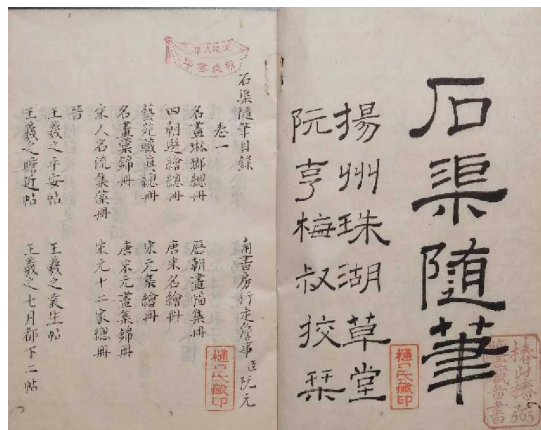 石渠隨筆
揚州珠湖草堂
阮亨梅叔挍栞
樋口氏藏印
石渠隨筆目錄
南書房行走詹事臣阮元
卷一
名畫琳瑯總冊
歷朝畫幅集冊
四朝選繪總冊
唐宋名繪冊
藝苑臧真總冊
宋元集繪冊
名畫棗錦冊
唐宋元畫集錦冊
宋人名流集藻冊
宋元十二家總冊
晉
王羲之平安帖
王羲之袁生帖
王羲之瞻近帖
王羲之七月都下二帖
樋口氏藏印